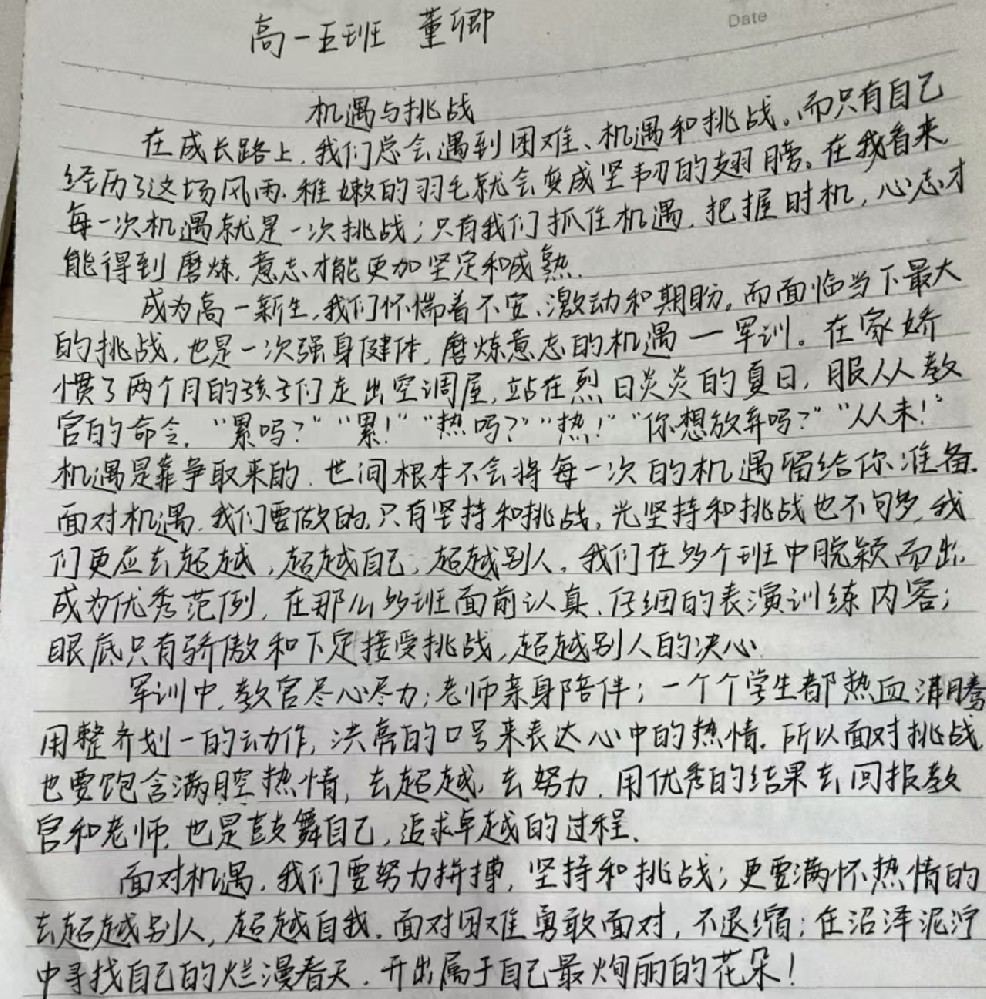 Date
高一五班 董卿
机遇与挑战
在成长路上,我们总会遇到困难、机遇和挑战。而只有自己
经历了这场风雨,稚嫩的羽毛就会变成坚韧的翅膀。在我看来
每一次机遇就是一次挑战;只有我们抓住机遇,把握时机,心志才
能得到磨炼,意志才能更加坚定和成熟.
成为高一新生,我们怀惴着不安、激动和期盼,而面临当下最大
的挑战,也是一次强身健体,磨炼意志的机遇—军训。在家娇
惯了两个月的孩子们走出空调屋,站在烈日炎炎的夏日,服从教
官的命令,“累吗?”“累!”“热吗?”“热!”“你想放弃吗?”“从未!”
机遇是靠争取来的,世间根本不会将每一次的机遇留给你准备.
面对机遇,我们要做的,只有坚持和挑战,光坚持和挑战也不够,我
们更应去超越,超越自己,超越别人。我们在多个班中脱颖而出,
成为优秀范例,在那么多班面前认真、仔细的表演训练内容;
眼底只有骄傲和下定接受挑战,超越别人的决心.
军训中,教官尽心尽力;老师亲身陪伴;一个个学生都热血沸腾
用整齐划一的动作,洪亮的口号来表达心中的热情.所以面对挑战,
也要饱含满腔热情,去超越,去努力,用优秀的结果去回报教
官和老师,也是鼓舞自己,追求卓越的过程.
面对机遇,我们要努力拼搏,坚持和挑战;更要满怀热情的
去超越别人,超越自我.面对困难勇敢面对,不退缩;在沼泽泥泞
中寻找自己的烂漫春天,开出属于自己最炯丽的花朵!